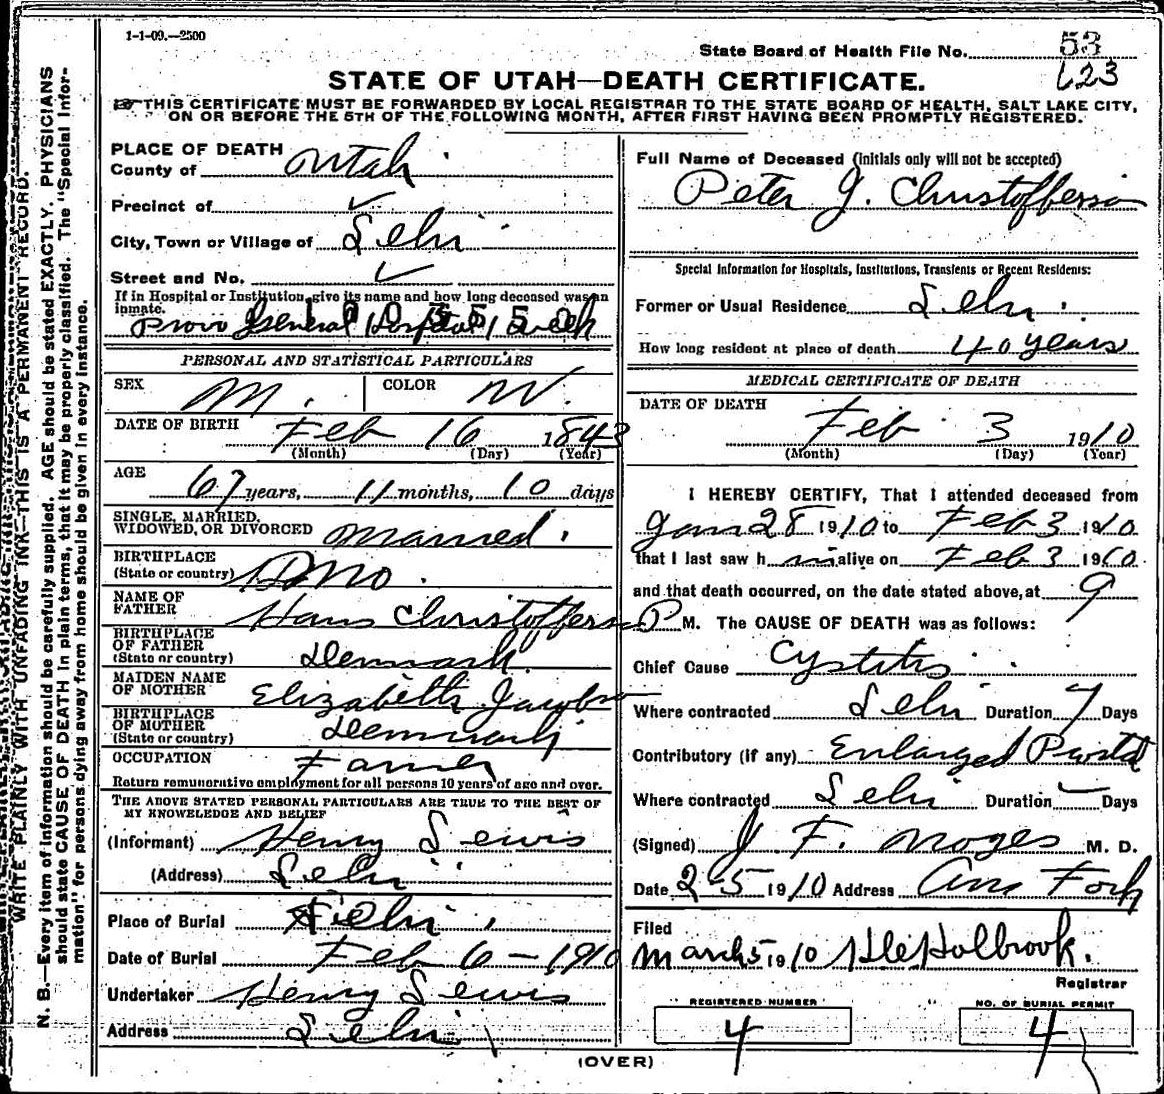 1-1-09.—2500
State Board of Health File No. 53
623
STATE OF UTAH—DEATH CERTIFICATE.
THIS CERTIFICATE MUST BE FORWARDED BY LOCAL REGISTRAR TO THE STATE BOARD OF HEALTH, SALT LAKE CITY,
ON OR BEFORE THE 5TH OF THE FOLLOWING MONTH, AFTER FIRST HAVING BEEN PROMPTLY REGISTERED.
WRITE PLAINLY WITH UNFADING INK—THIS IS A PERMANENT RECORD.
N. B.—Every item of information should be carefully supplied. AGE should be stated EXACTLY. PHYSICIANS
should state CAUSE OF DEATH in plain terms, that it may be properly classified. The "Special Infor-
mation" for persons dying away from home should be given in every instance.
PLACE OF DEATH
County of Utah
Precinct of ✓
City, Town or Village of Lehi
Street and No. ✓
If in Hospital or Institution, give its name and how long deceased was an
inmate.
Provo General Hospital 1 Week
PERSONAL AND STATISTICAL PARTICULARS
SEX M. COLOR W.
DATE OF BIRTH Feb 16 1843
(Month) (Day) (Year)
AGE 67 years, 11 months, 10 days
SINGLE, MARRIED,
WIDOWED, OR DIVORCED Married.
BIRTHPLACE
(State or country)
NAME OF
FATHER Hans Christofferson
BIRTHPLACE
OF FATHER
(State or country) Denmark
MAIDEN NAME
OF MOTHER Elizabeth Jacobson
BIRTHPLACE
OF MOTHER
(State or country) Denmark
OCCUPATION Farmer
Return remunerative employment for all persons 10 years of age and over.
THE ABOVE STATED PERSONAL PARTICULARS ARE TRUE TO THE BEST OF
MY KNOWELEDGE AND BELIEF
(Informant) Henry Lewis
(Address) Lehi
Place of Burial Lehi
Date of Burial Feb 6 - 1910
Undertaker Henry Lewis
Address Lehi
Full Name of Deceased (initials only will not be accepted)
Peter J. Christofferson
Special Information for Hospitals, Institutions, Transients or Recent Residents:
Former or Usual Residence Lehi
How long resident at place of death 40 years
MEDICAL CERTIFICATE OF DEATH
DATE OF DEATH
Feb 3 1910
(Month) (Day) (Year)
I HEREBY CERTIFY, That I attended deceased from
Jan 28 1910 to Feb 3 1910
that I last saw h im alive on Feb 3 1910
and that death occurred, on the date stated above, at 9
P M. The CAUSE OF DEATH was as follows:
Chief Cause Cystitis
Where contracted Lehi Duration 7 Days
Contributory (if any) Enlarged Prostate
Where contracted Lehi Duration Days
(Signed) J. F. Noyes M. D.
Date 2-5 1910 Address Am Fork
Filed
March 5 1910 Holbrook.
Registrar
REGISTERED NUMBER
4
NO. OF BURIAL PERMIT
4
(OVER)